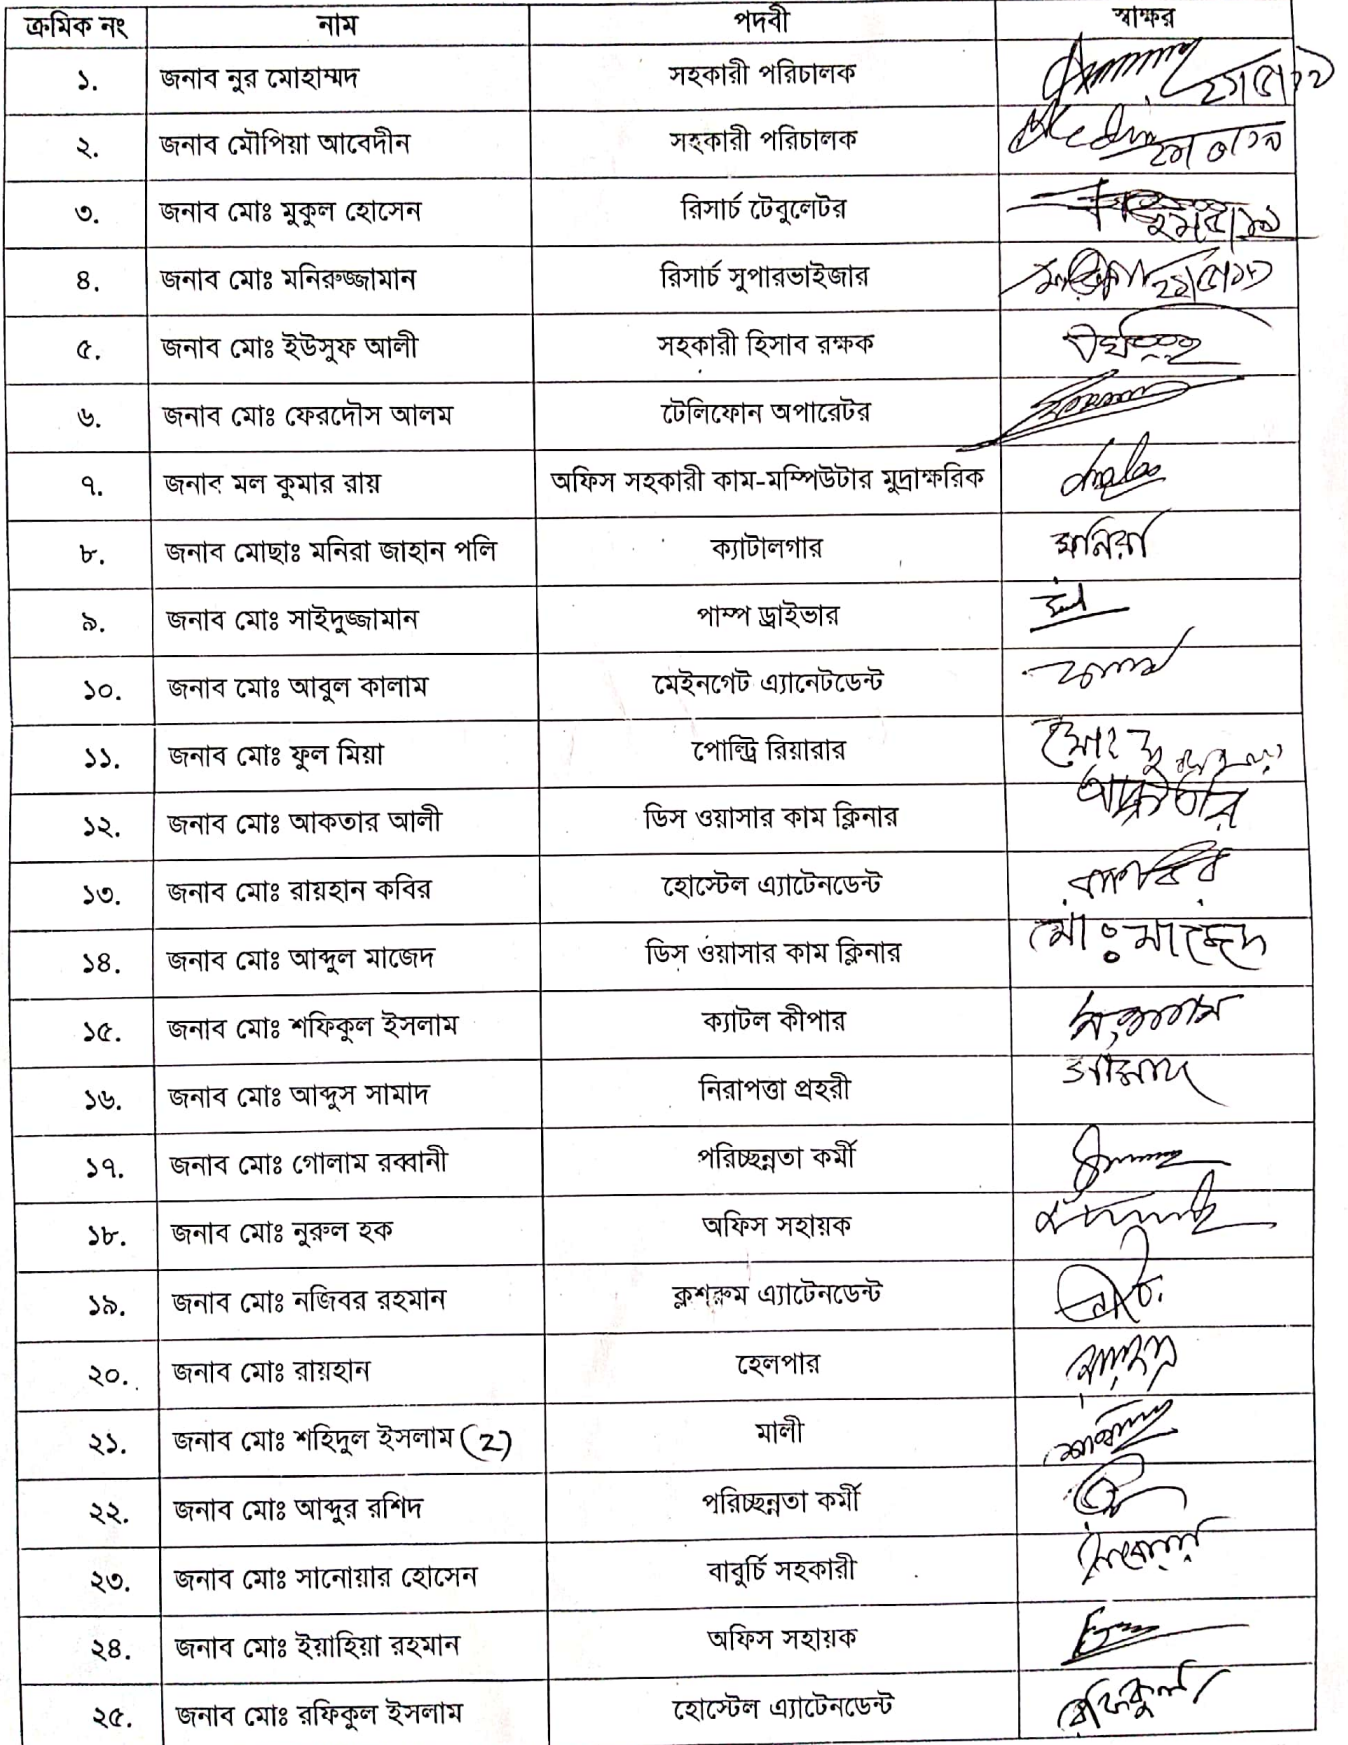 ক্রমিক নং নাম পদবী স্বাক্ষর
১. জনাব নুর মোহাম্মদ সহকারী পরিচালক
২. জনাব মৌপিয়া আবেদীন সহকারী পরিচালক
৩. জনাব মোঃ মুকুল হোসেন রিসার্চ টেবুলেটর
৪. জনাব মোঃ মনিরুজ্জামান রিসার্চ সুপারভাইজার
৫. জনাব মোঃ ইউসুফ আলী সহকারী হিসাব রক্ষক
৬. জনাব মোঃ ফেরদৌস আলম টেলিফোন অপারেটর
৭. জনাব মল কুমার রায় অফিস সহকারী কাম-মম্পিউটার মুদ্রাক্ষরিক
৮. জনাব মোছাঃ মনিরা জাহান পলি ক্যাটালগার মনিরা
৯. জনাব মোঃ সাইদুজ্জামান পাম্প ড্রাইভার
১০. জনাব মোঃ আবুল কালাম মেইনগেট এ্যানেটডেন্ট
১১. জনাব মোঃ ফুল মিয়া পোল্ট্রি রিয়ারার
১২. জনাব মোঃ আকতার আলী ডিস ওয়াসার কাম ক্লিনার আকতার
১৩. জনাব মোঃ রায়হান কবির হোস্টেল এ্যাটেনডেন্ট
১৪. জনাব মোঃ আব্দুল মাজেদ ডিস ওয়াসার কাম ক্লিনার মোঃ মাজেদ
১৫. জনাব মোঃ শফিকুল ইসলাম ক্যাটল কীপার
১৬. জনাব মোঃ আব্দুস সামাদ নিরাপত্তা প্রহরী
১৭. জনাব মোঃ গোলাম রব্বানী পরিচ্ছন্নতা কর্মী
১৮. জনাব মোঃ নুরুল হক অফিস সহায়ক
১৯. জনাব মোঃ নজিবর রহমান ক্লশরুম এ্যাটেনডেন্ট
২০. জনাব মোঃ রায়হান হেলপার
২১. জনাব মোঃ শহিদুল ইসলাম (2) মালী
২২. জনাব মোঃ আব্দুর রশিদ পরিচ্ছন্নতা কর্মী
২৩. জনাব মোঃ সানোয়ার হোসেন বাবুর্চি সহকারী
২৪. জনাব মোঃ ইয়াহিয়া রহমান অফিস সহায়ক
২৫. জনাব মোঃ রফিকুল ইসলাম হোস্টেল এ্যাটেনডেন্ট রফিকুল